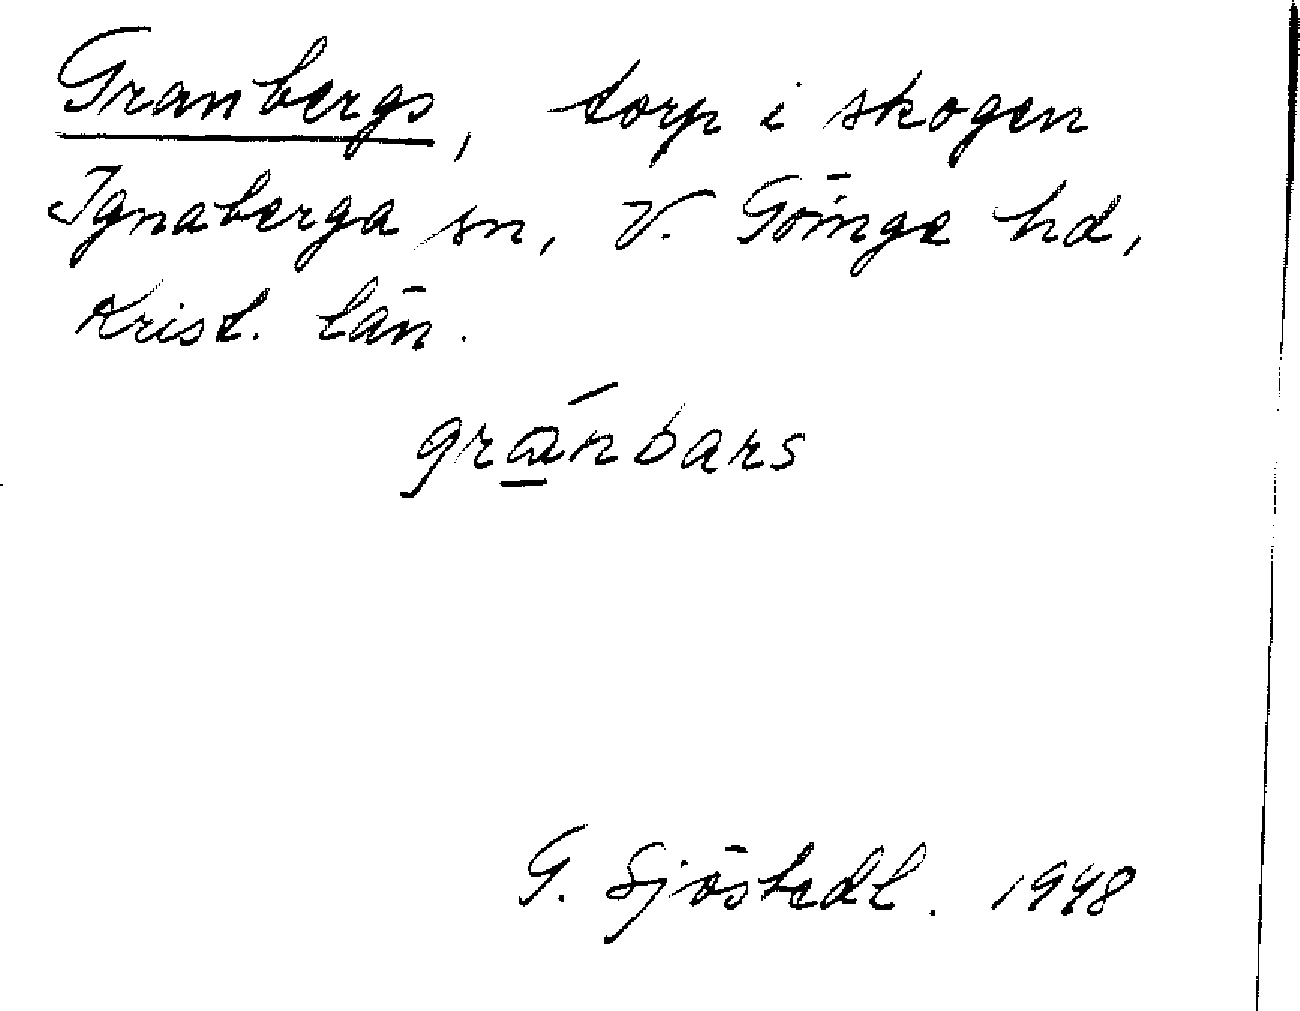 Granbergs, torp i skogen
Ignaberga sn, V. Göinge hd,
Krist. län.
gra̱nbars
G. Sjöstedt. 1948